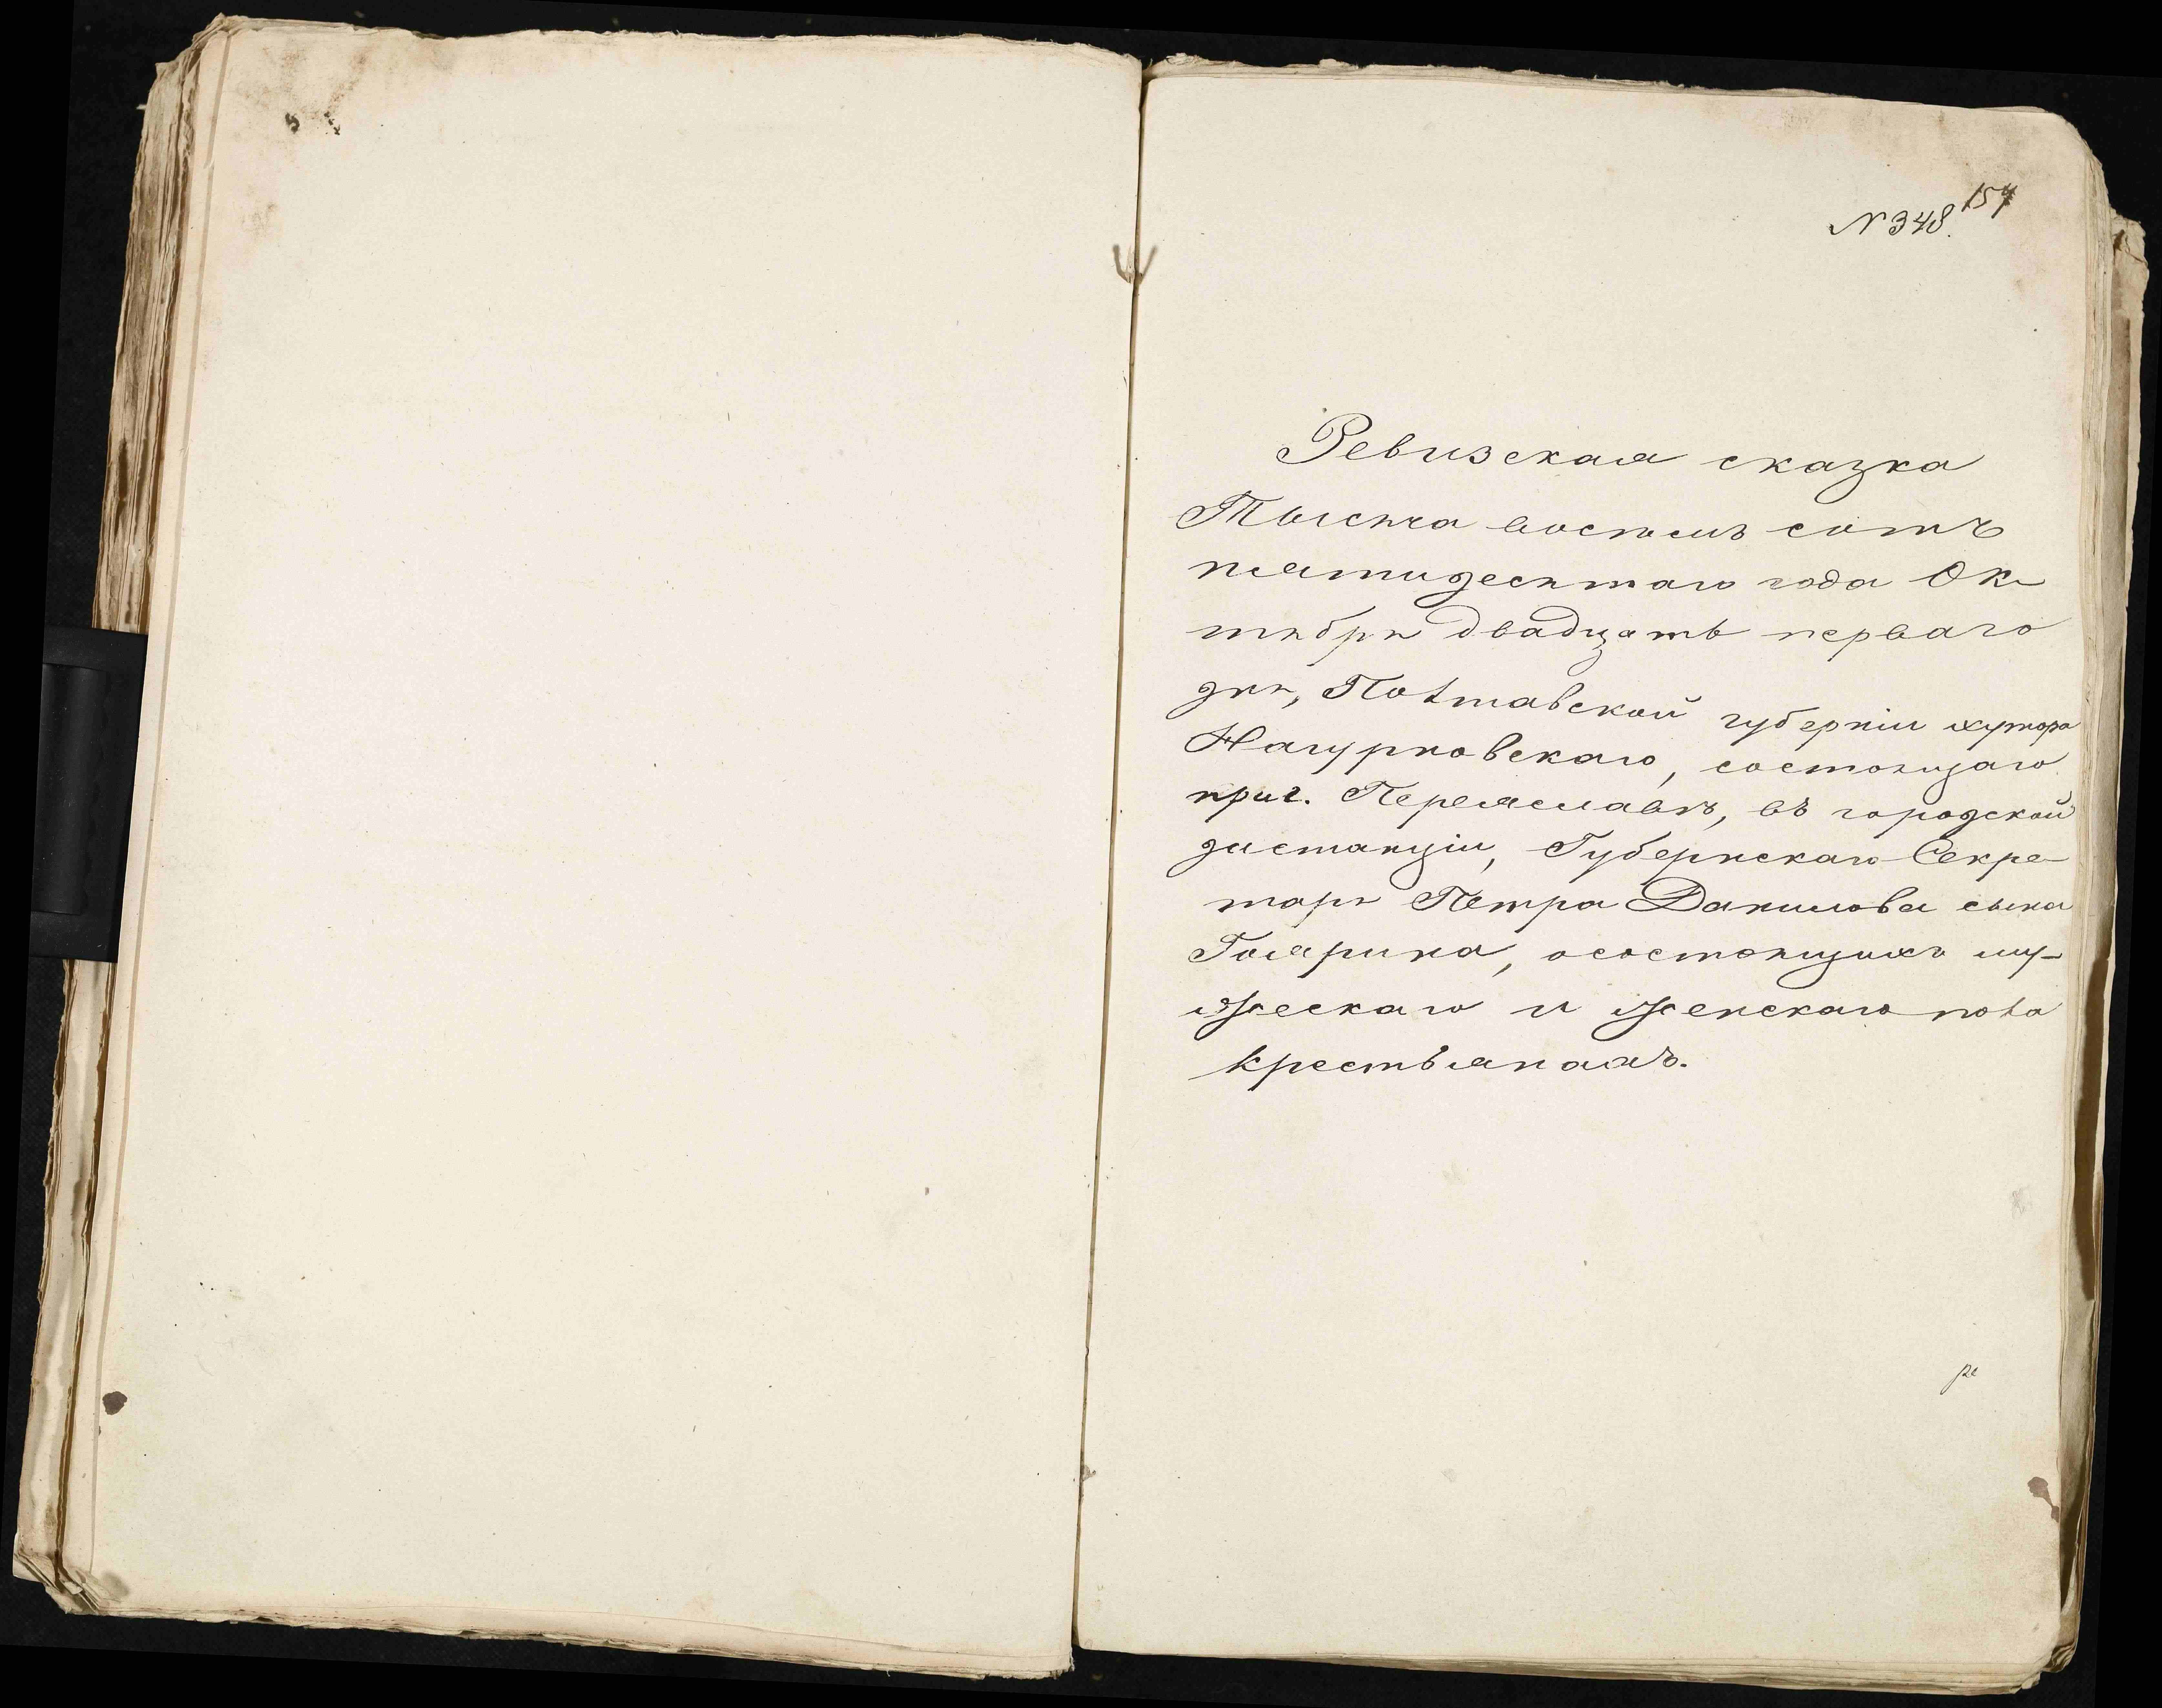 N 348. 154
Ревизская сказка
Тысяча восемь сотъ
пятидесятаго года Ок-
тября двадцать перваго
дня, Полтавской губерніи хутора
Нагурновскаго, состоящаго
при г. Переяславѣ, въ городской
дистанціи, Губернскаго Секре-
таря Петра Данилова сына
о состоящихъ му-
жескаго и женскаго пола
крестьянахъ.